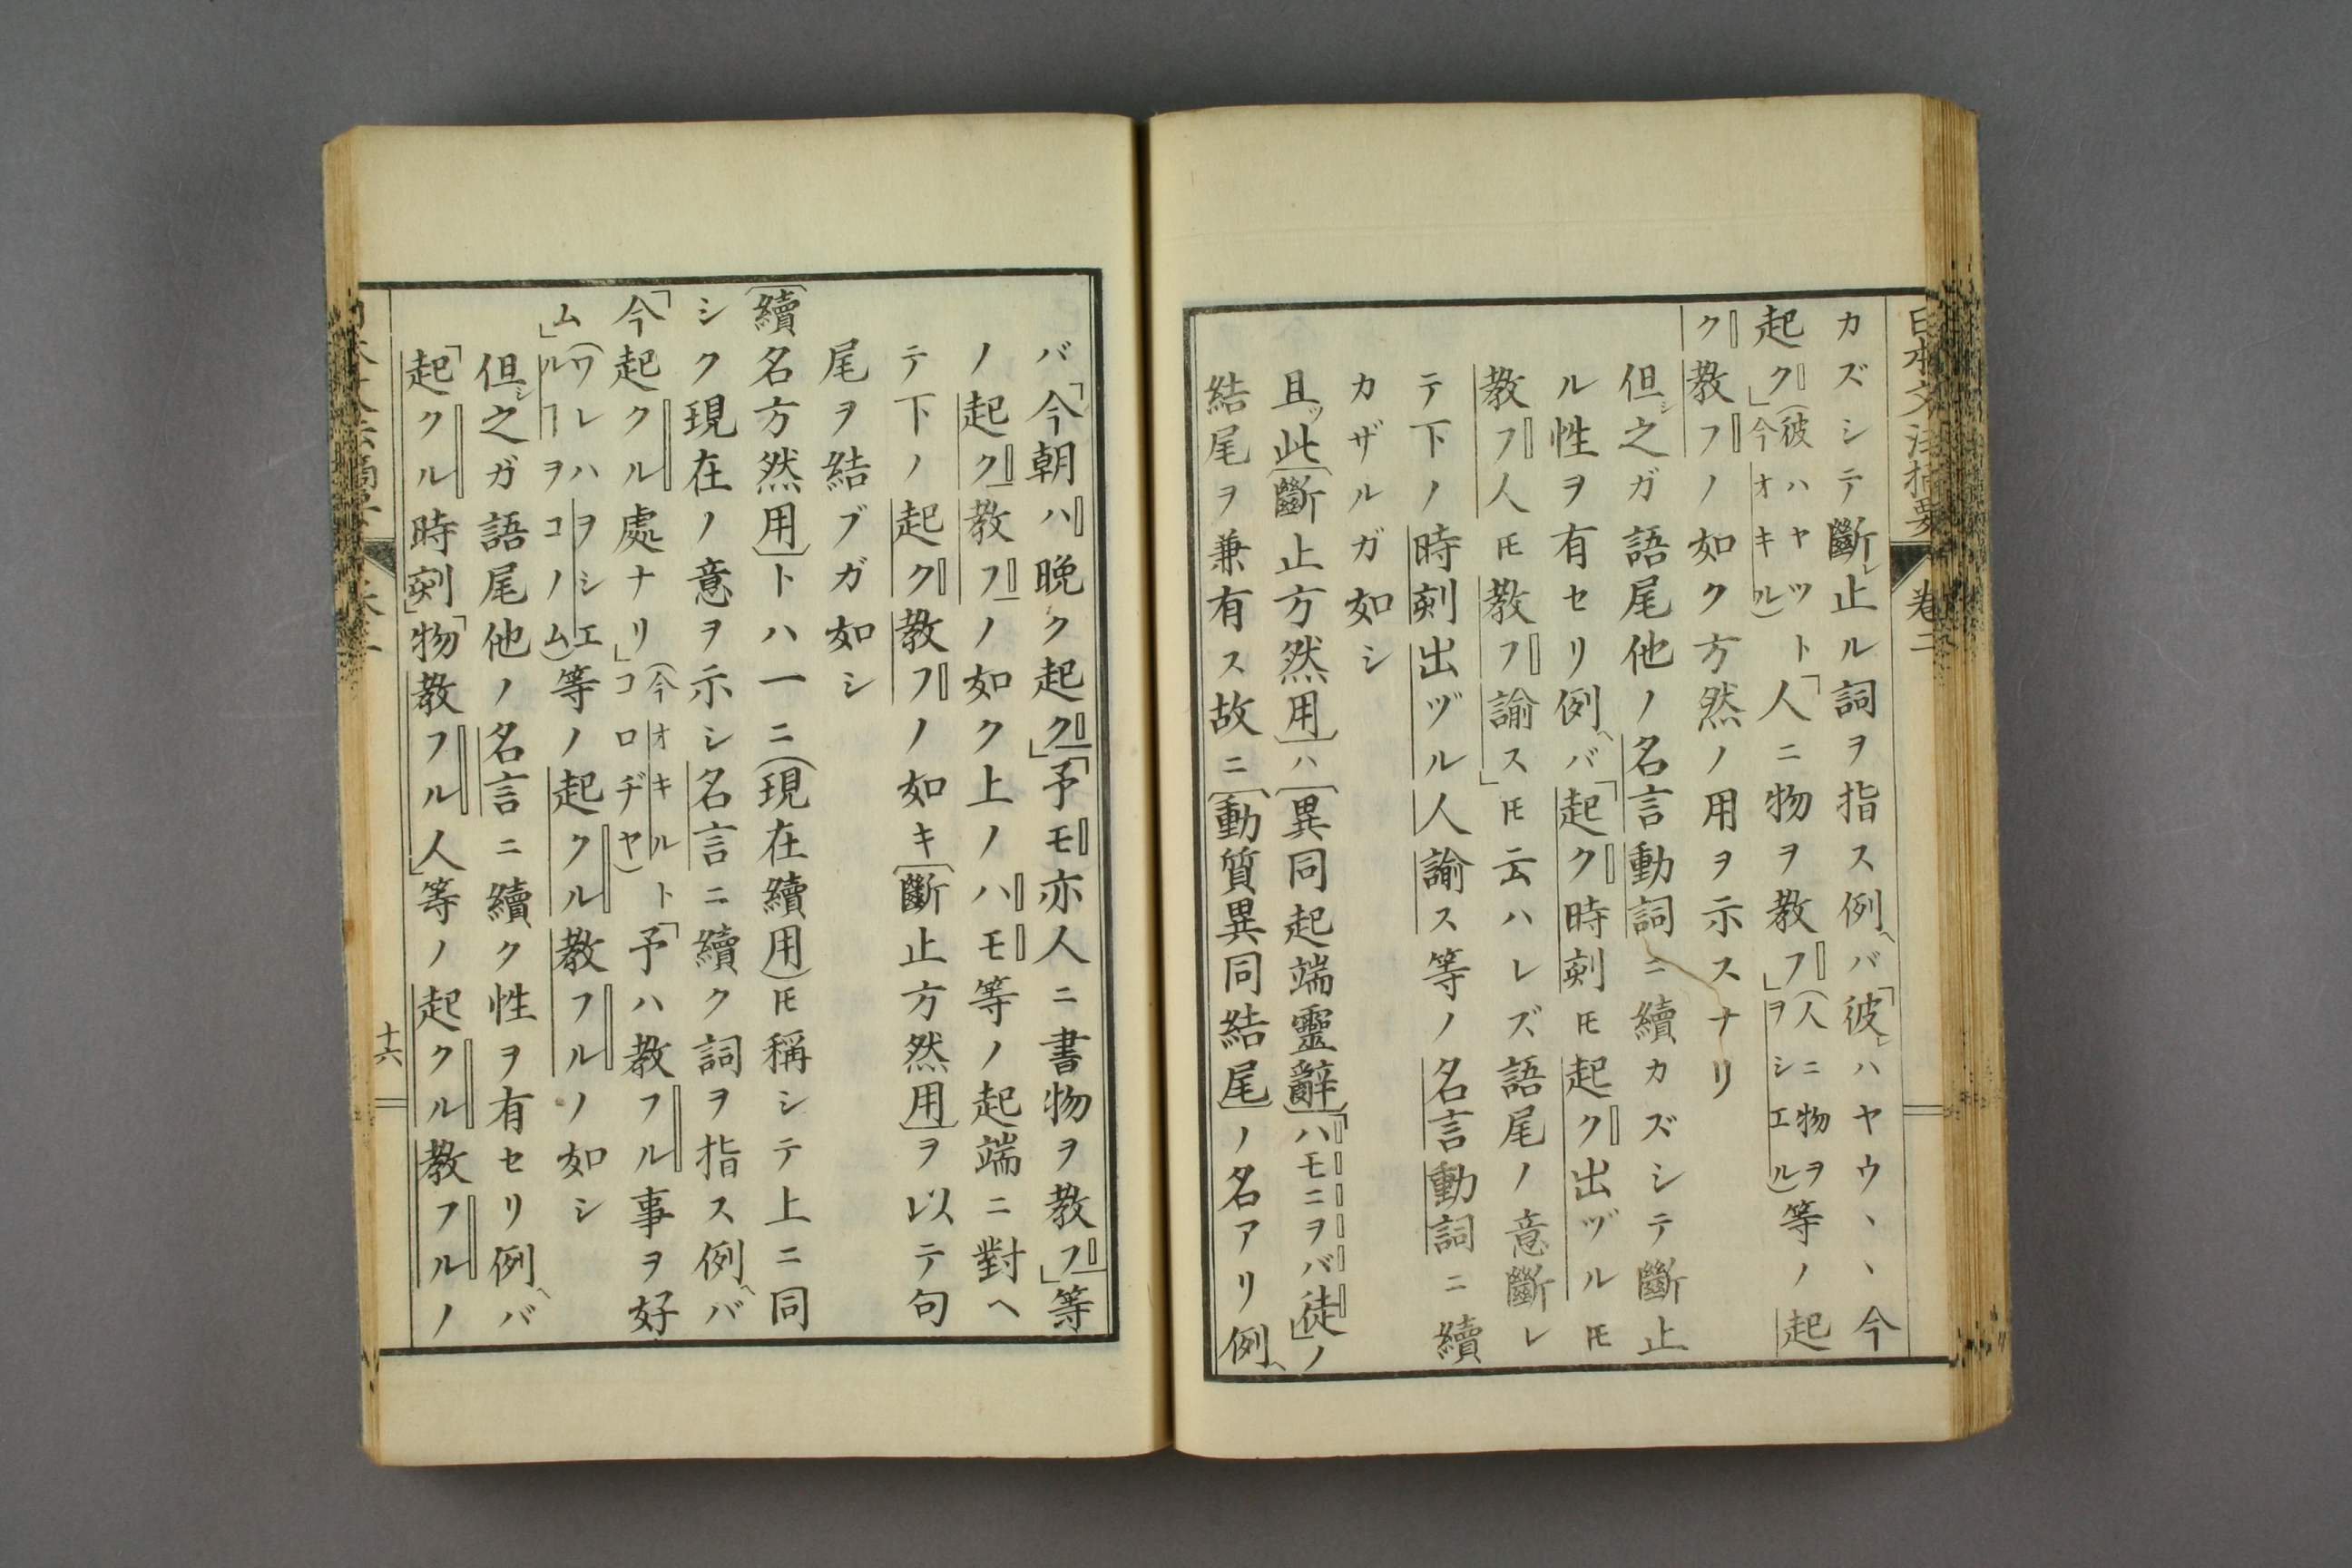 日本文法摘要 卷二
カズシテ斷レ止ル詞ヲ指ス例ヘバ「彼レハヤウヽヽ今
起ク」(彼ハヤツト今オキル)「人ニ物ヲ教フ」(人ニ物ヲヲシエル)等ノ起
ク教フノ如ク方然ノ用ヲ示スナリ
但シ之ガ語尾他ノ名言動詞ニ續カズシテ斷止
ル性ヲ有セリ例ヘバ「起ク時刻𪜈起ク出ヅル𪜈
教フ人𪜈教フ諭ス」𪜈云ハレズ語尾ノ意斷レ
テ下ノ時刻出ヅル人諭ス等ノ名言動詞ニ續
カザルガ如シ
且ツ此〔斷止方然用〕ハ〔異同起端靈辭〕「ハモニヲバ徒」ノ
結尾ヲ兼有ス故ニ〔動質異同結尾〕ノ名アリ例ヘ
バ「今朝ハ晩ク起ク」「予モ亦人ニ書物ヲ教フ」等
ノ起ク教フノ如ク上ノハモ等ノ起端ニ對ヘ
テ下ノ起ク教フノ如キ〔斷止方然用〕ヲ以テ句
尾ヲ結ブガ如シ
〔續名方然用〕トハ一ニ(現在續用)𪜈稱シテ上ニ同
シク現在ノ意ヲ示シ名言ニ續ク詞ヲ指ス例ヘバ
「今起クル處ナリ」(今オキルトコロヂヤ)ト「予ハ教フル事ヲ好
ム」(ワレハヲシエルヿヲコノム)等ノ起クル教フルノ如シ
但シ之ガ語尾他ノ名言ニ續ク性ヲ有セリ例ヘバ
「起クル時刻」「物教フル人」等ノ起クル教フルノ
十六